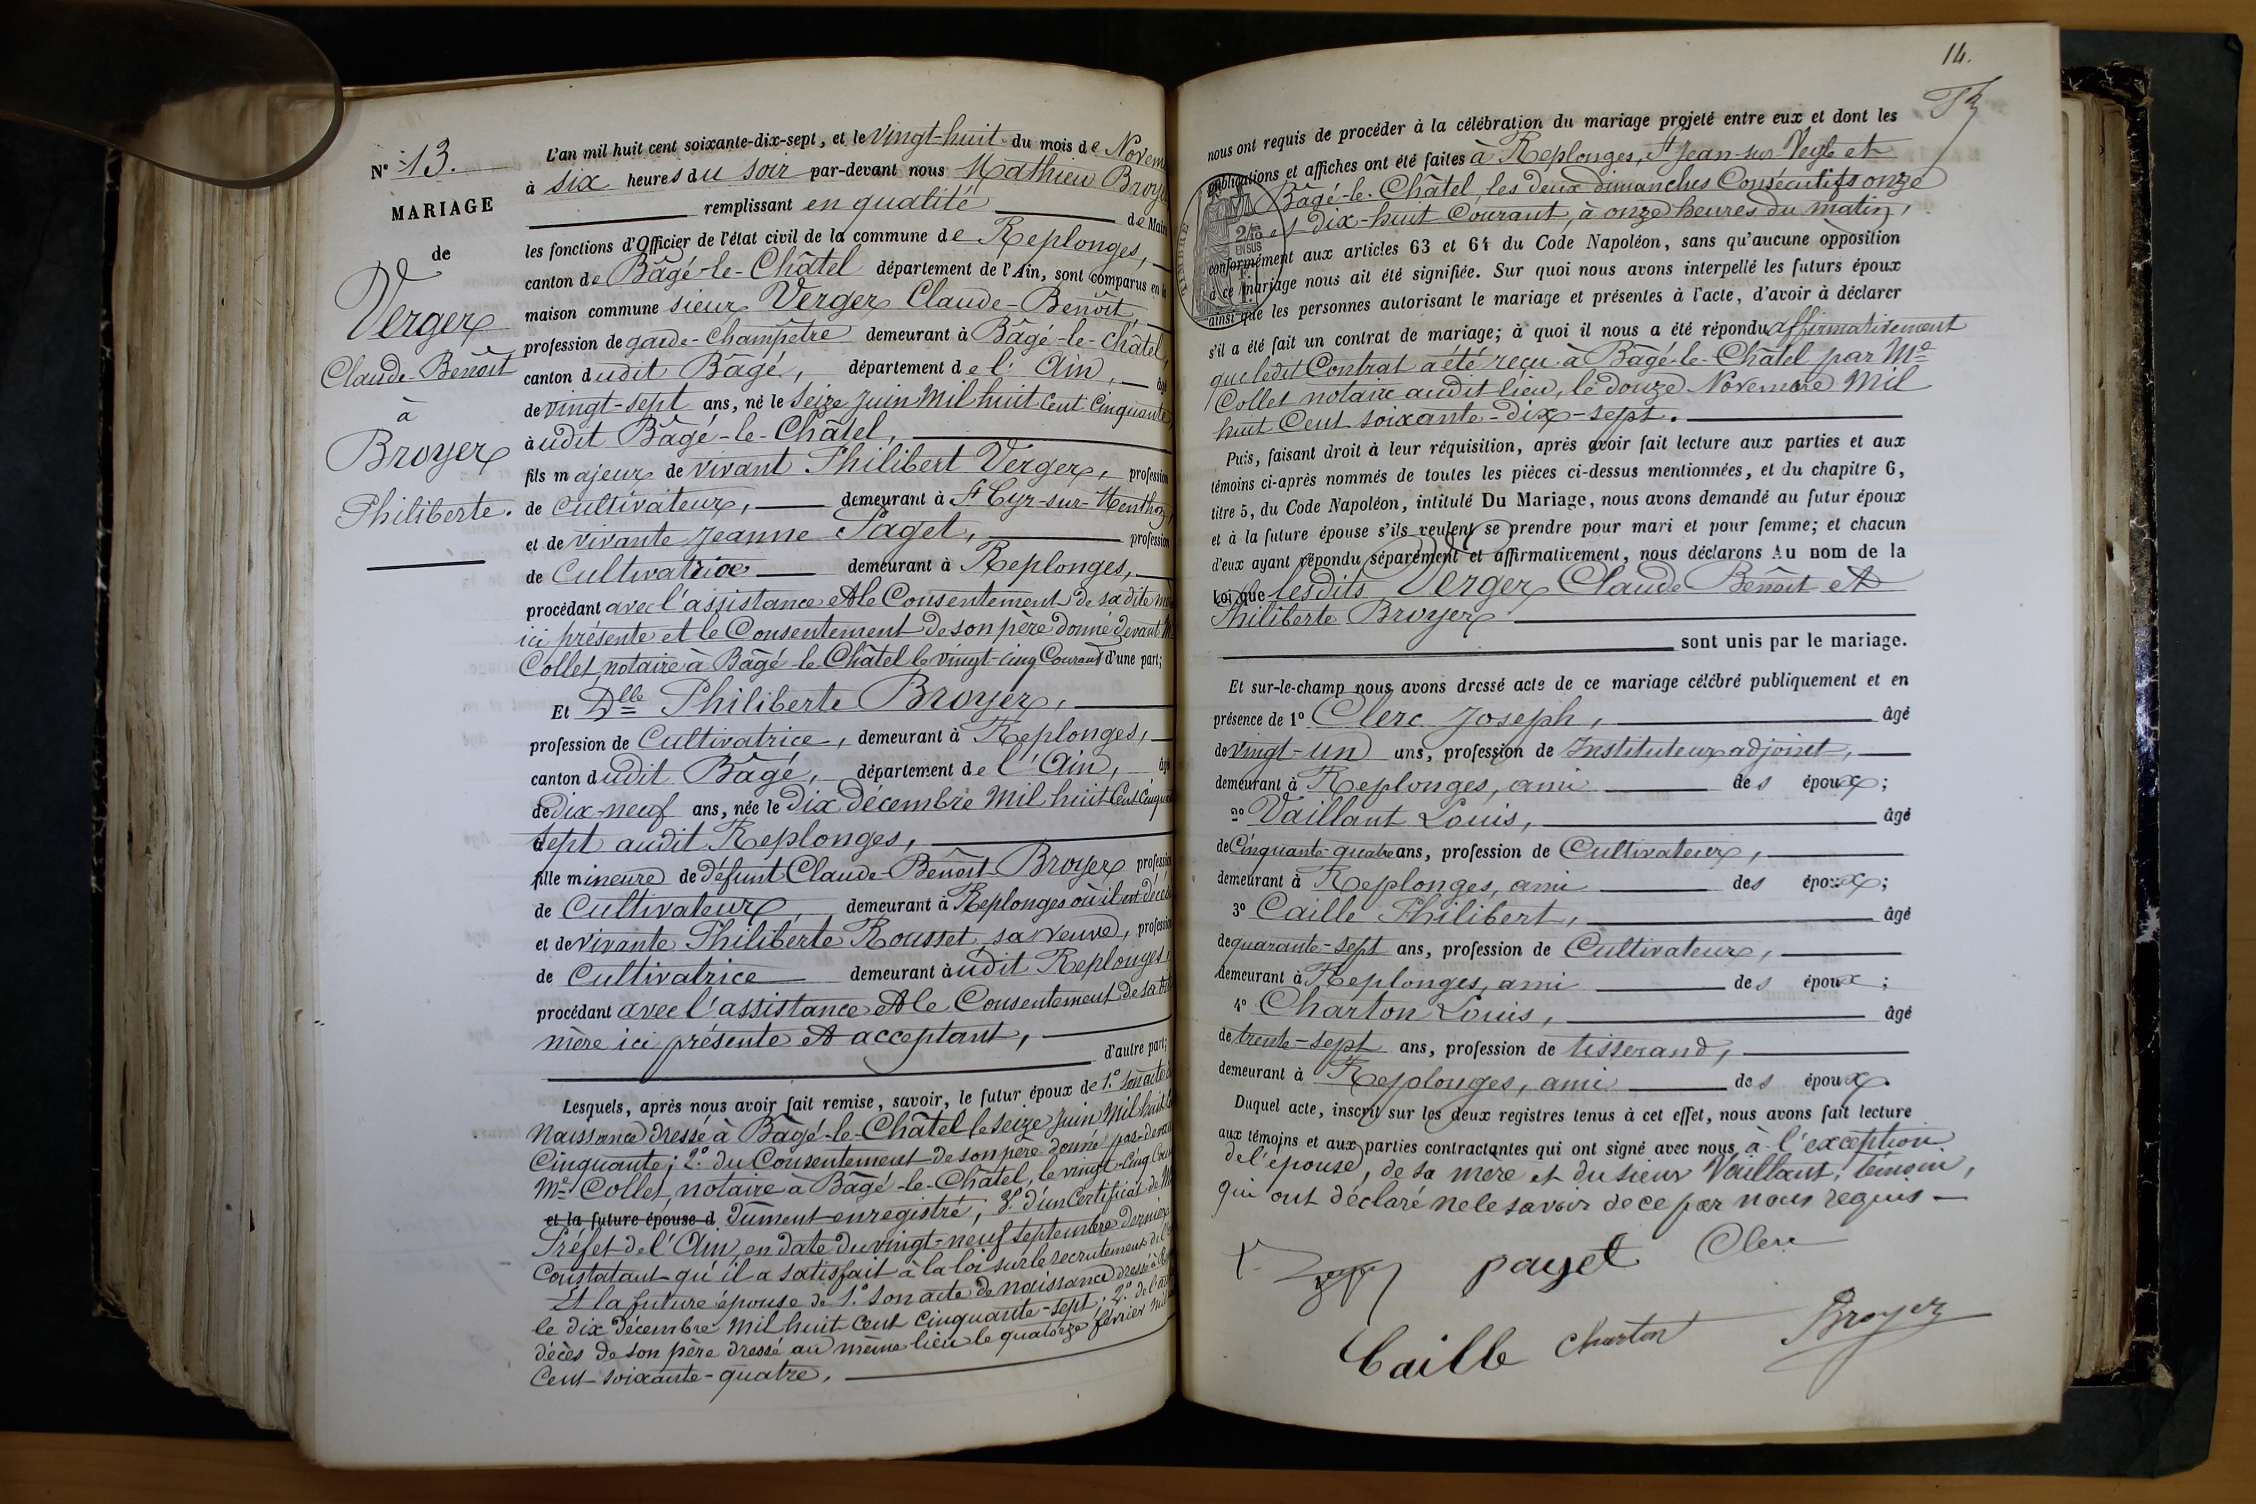 N° 13.
MARIAGE
de
Verger
Claude-Benoît
à
Broyer
Philiberte.
L'an mil huit cent soixante-dix-sept, et le vingt-huit du mois de Novem
à six heures du soir par-devant nous Mathieu Broye
remplissant en qualité de Mair
les fonctions d'Officier de l'état civil de la commune de Replonges,
canton de Bâgé-le-Châtel département de l'Ain, sont comparus en la
maison commune sieur Verger Claude-Benoît,
profession de garde-champêtre demeurant à Bâgé-le-Châtel,
canton dudit Bâgé, département de l'Ain, âgé
de vingt-sept ans, né le seize Juin Mil huit Cent Cinquante,
àudit Bâgé-le-Châtel,
fils majeur de vivant Philibert Verger, profession
de Cultivateur, demeurant à St Cyr-sur-Menthon,
et de vivante Jeanne Paget, profession
de Cultivatrice demeurant à Replonges,
procédant avec l'assistance et le Consentement de sa dite mè
ici présente et le Consentement de son père donné devant Me
Collet, notaire à Bâgé-le-Châtel le vingt-cinq Courant d'une part;
Et Dlle Philiberte Broyer,
profession de Cultivatrice, demeurant à Replonges,
canton dudit Bâgé, département de l'Ain, âgé
de dix-neuf ans, née le Dix Décembre Mil huit Cent Cinqua
sept audit Replonges,
fille mineure de défunt Claude-Benoît Broyer profession
de Cultivateur, demeurant à Replonges où il est décé
et de vivante Philiberte Rousset, sa veuve, profession
de Cultivatrice demeurant àudit Replonges,
procédant avec l'assistance et le Consentement de sa
mère ici présente et acceptant,
d'autre part;
Lesquels, après nous avoir fait remise, savoir, le futur époux de 1.° son acte
Naissance dressé à Bâgé-le-Châtel le seize Juin Mil huit
Cinquante; 2.° du Consentement de son père donné par-deva
Me Collet, notaire à Bâgé-le-Châtel, le vingt-cinq Cour
et la future épouse d dûment enregistré, 3.° d'un Certificat de M
Préfet de l'Ain, en date du vingt-neuf Septembre Dernier
Constatant qu'il a satisfait à la loi sur le recrutement de l'
Et la future épouse de 1.° son acte de naissance dressé à
le dix Décembre Mil huit cent cinquante-sept; 2.° de l'a
décès de son père dressé au même lieu le quatorze février mil
Cent soixante-quatre,
14.
nous ont requis de procéder à la célébration du mariage projeté entre eux et dont les
publications et affiches ont été faites à Replonges, St Jean-sur-Veyle et
Bâgé-le-Châtel, les deux dimanches Consécutifs onze
et dix-huit Courant, à onze heures du matin,
conformément aux articles 63 et 64 du Code Napoléon, sans qu'aucune opposition
à ce mariage nous ait été signifiée. Sur quoi nous avons interpellé les futurs époux
ainsi que les personnes autorisant le mariage et présentes à l'acte, d'avoir à déclarer
s'il a été fait un contrat de mariage; à quoi il nous a été répondu affirmativement
que ledit Contrat a été reçu à Bâgé-le-Châtel par Me
Collet notaire audit lieu, le douze Novembre Mil
huit Cent soixante-dix-sept.
TIMBRE
2/10
EN SUS
Puis, faisant droit à leur réquisition, après avoir fait lecture aux parties et aux
témoins ci-après nommés de toutes les pièces ci-dessus mentionnées, et du chapitre 6,
titre 5, du Code Napoléon, intitulé Du Mariage, nous avons demandé au futur époux
et à la future épouse s'ils veulent se prendre pour mari et pour femme; et chacun
d'eux ayant répondu séparément et affirmativement, nous déclarons Au nom de la
Loi que lesdits Verger Claude Benoît et
Philiberte Broyer
sont unis par le mariage.
Et sur-le-champ nous avons dressé acte de ce mariage célébré publiquement et en
présence de 1° Clerc Joseph, âgé
de vingt-un ans, profession de Instituteur adjoint,
demeurant à Replonges, ami des époux;
2° Vaillant Louis, âgé
de Cinquante-quatre ans, profession de Cultivateur,
demeurant à Replonges, ami des époux;
3° Caille Philibert, âgé
de quarante-sept ans, profession de Cultivateur,
demeurant à Replonges, ami des époux;
4° Charton Louis, âgé
de trente-sept ans, profession de tisserand,
demeurant à Replonges, ami des époux.
Duquel acte, inscrit sur les deux registres tenus à cet effet, nous avons fait lecture
aux témoins et aux parties contractantes qui ont signé avec nous, à l'exception
de l'épouse, de sa mère et du sieur Vaillant, témoin,
qui ont déclaré ne le savoir de ce par nous requis
payet Clerc
Caille Charton Broyer